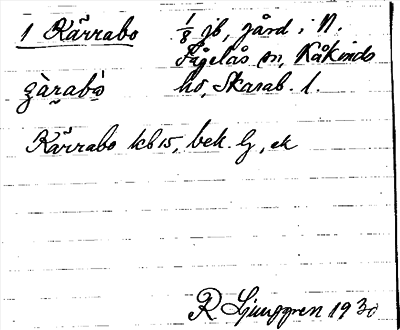 1 Kärrabo 1/8 jb, gård i N.
Fågelås sn, Kåkinds
hd, Skarab. l.
Kärrabo kb 15, bek. lj, ek
R Ljunggren 1930